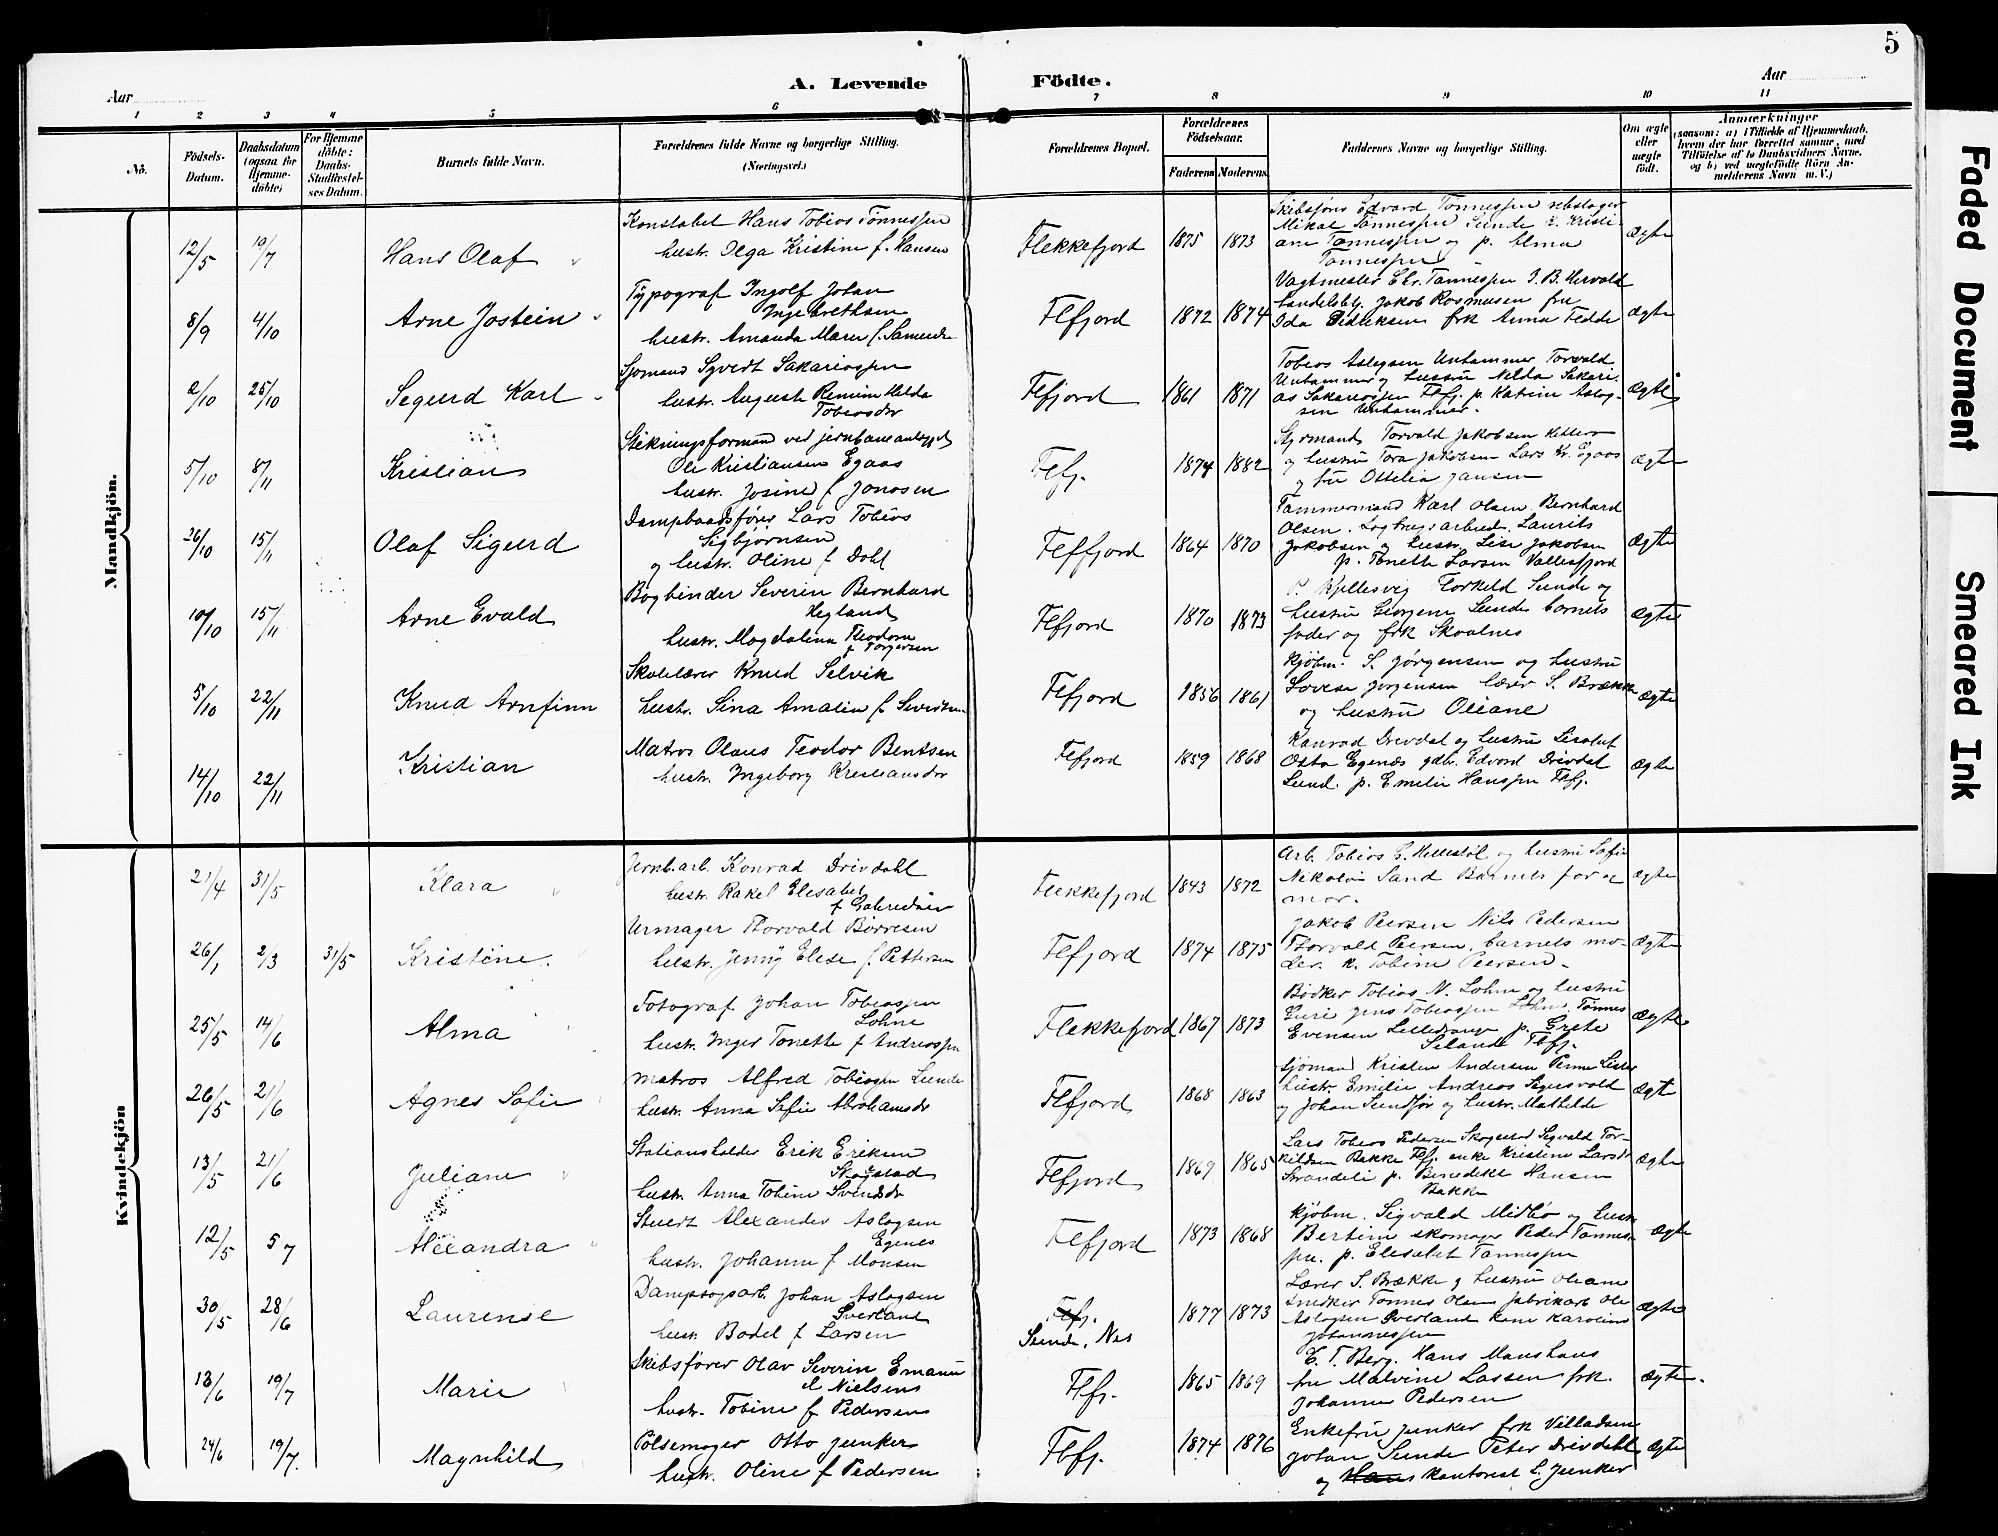 5
A. Levende Födte.
Aar
Aar
1 2 3 4 5 6 7 8 9 10 11
No.
Födsels-Datum.
Daabsdatum (ogsaa for Hjemmedöbte)
For Hjemmedöbte: Daabs-Stadfæstelses Datum.
Barnets fulde Navn.
Forældrenes fulde Navne og borgerlige Stilling. (Næringsvei.)
Forældrenes Bopæl.
Forældrenes Födselsaar.
Faderens Moderens.
Faddernes Navne og borgerlige Stilling.
Om ægte eller uægte födt.
Anmærkninger
(saasom: a) i Tilfælde af Hjemmedaab, hvem der har forrettet samme, med Tilföielse af to Daabsvidners Navne, og b) ved uægtefödte Börn Anmelderens Navn m. V.)
Mandkjön.
12/5 19/7 Hans Olaf
Konstabel Hans Tobias Tönnessen
hustr. Olga Kristine f. Hansen
Flekkefjord 1875 1873
Skibsförs Edvard Tönnessen rebslager
Mikal Tönnessen Sunde k. Kristi-
ane Tönnessen og p. Alma
Tönnessen
Ægte
8/9 4/10 Arne Jostein
Typograf Ingolf Johan
Ingebrethsen
hustr. Amanda Marie f.
Flfjord 1872 1874
Vagtmester Chr. Tønnessen J. B. Hervold
handelsbtj. Jakob Rasmusen fru
Ida Didriksen frk Anna Fedde
Ægte
2/10 25/10 Segurd Karl
Sjømand Syvert Sakariassen
hustr. Auguste
Tobiasdtr
Flfjord 1861 1871
Tobias Aslagsen Unhammer Torvald
Unhammer og hustru Nilda Sakari-
as Sakariassen Flfj. p. Katrine Aslag-
sen Unhammer.
Ægte
5/10 8/11 Kristian
Stikningsformand ved jernbaneanlægget
Ole Kristiansen Egaas
hustr. Josine f Jonasen
Flfj. 1874 1882
Styrmand Torvald Jakobsen
og hustru Tora Jakobsen Lars Kr. Egaas
og fru Ottelia Jansen
Ægte
26/10 15/11 Olaf Sigurd
Dampbaadsfører Lars Tobias
Sigbjørnsen
og hustr. Oline f Dahl
Flffjord 1864 1870
Tømmermand Karl Olsen Bernhard
Olsen. Laurits
Jakobsen og hustr. Lise Jakobsen
p. Tonette Larsen
Ægte
10/10 15/11 Arne Evald
Bogbinder Severin Bernhard
Hegland
hustr. Magdalina Theodora
f Torgersen
Flfjord 1870 1873
Kjellesvig Torkeld Sunde og
hustru Georgine Sunde barnets
fader og frk Skoalnes
Ægte
5/10 22/11 Knud Arnfinn
Skolelærer Knud Selvik
hustr. Sina Amalie f
Flfjord 1856 1861
Kjøbm. S. Jørgensen og hustru
Lovise Jørgensen lærer S. Brække
og hustru Oliane
Ægte
14/10 22/11 Kristian
Matros Olaus Teodor Bentsen
hustr. Ingeborg Kristiansdtr
Flfjord 1859 1868
Konrad Drivdal og hustru Lisabet
Otto Egenæs gdbr. Edvard Drivdal
Lund. p. Emilie Hanssen Flfj.
Ægte
Kvindekjön
21/4 31/5 Klara
Jernb.arb. Konrad Drivdahl
hustr. Rakel Elesabet
f Gabrielsen
Flekkefjord 1843 1872
Arb. Tobias G. Hellestøl og hustru Sofie
Nikolai Sand Barnets far og
mor.
Ægte
26/1 2/3 31/5 Kristine.
Urmager Thorvald Børresen
hustr. Jenny Elise f. Pettersen
Flfjord 1874 1875
Jakob Peersen Nils Pedersen
Thorvald Peersen, barnets mo-
der. k. Tobine Peersen.
Ægte
25/5 14/6 Alma
Fotograf Johan Tobiassen
Lohne
hustr. Inger Tonette f Andreassen
Flekkefjord 1867 1873
Bødker Tobias N. Lohne og hustru
Guri Jens Tobiassen Lohne Tønnes
Evensen p. Grete
Selande Flfj.
Ægte
26/5 21/6 Agnes Sofie
Matros Alfred Tobiassen Lunde
hustr. Anna Sofie Abrahamsdtr
Flfjord 1868 1863
Sjømand Kristen Andersen
hustr Emilie Andreas Sigusvold
og Johan Sundfør og hustr. Mathilde
Ægte
13/5 21/6 Juliane
Stationsholder Erik Eriksen
Skogstad
hustr. Anna Tobine Svendsdtr
Flfjord 1869 1865
Lars Tobias Pedersen Skogestad Sigvald Tor-
kildsen Bakke Flfj. enke Kristine Larsdtr
Strandeli p. Benedikte Hansen
Bakke
Ægte
12/5 5 7 Alexandra
Stuert Alexander Aslagsen
Egenes
hustr. Johanne f Monsen
Flfjord 1873 1868
Kjøbm. Sigvald Midbø og hustr
Bertine skomager Peder Tønnes-
sen. p. Elisabet Tønnessen
Ægte
30/5 28/6 Laurense
Dampsagsarb. Johan Aslagsen
Øverland
hustr. Bodel f Larsen
Flfj.
Sunde, Nes 1877 1873
Lærer S. Brække og hustru Oliane
Snedker Tønnes Olsen fabrikarb Ole
Aslagsen Øverland kone Karoline
Johannessen
Ægte
13/6 19/7 Marie
Skibsfører Olav Severin Emanu-
el Nielsen
hustr. Tobine f Pedersen
Flfj. 1865 1869
C. T. Berg. Hans Monshaus
fru Malvine Lassen frk.
Johanne Pedersen
Ægte.
24/6 19/7. Magnhild
Pølsemager Otto Junker
hustr. Oline f Pedersen
Flfj. 1874 1876
Enkefru Junker frk Villadsen
Johan Sunde Peter Drivdahl
og Hans kontorist L. Junker
Ægte
Faded Document
Smeared Ink